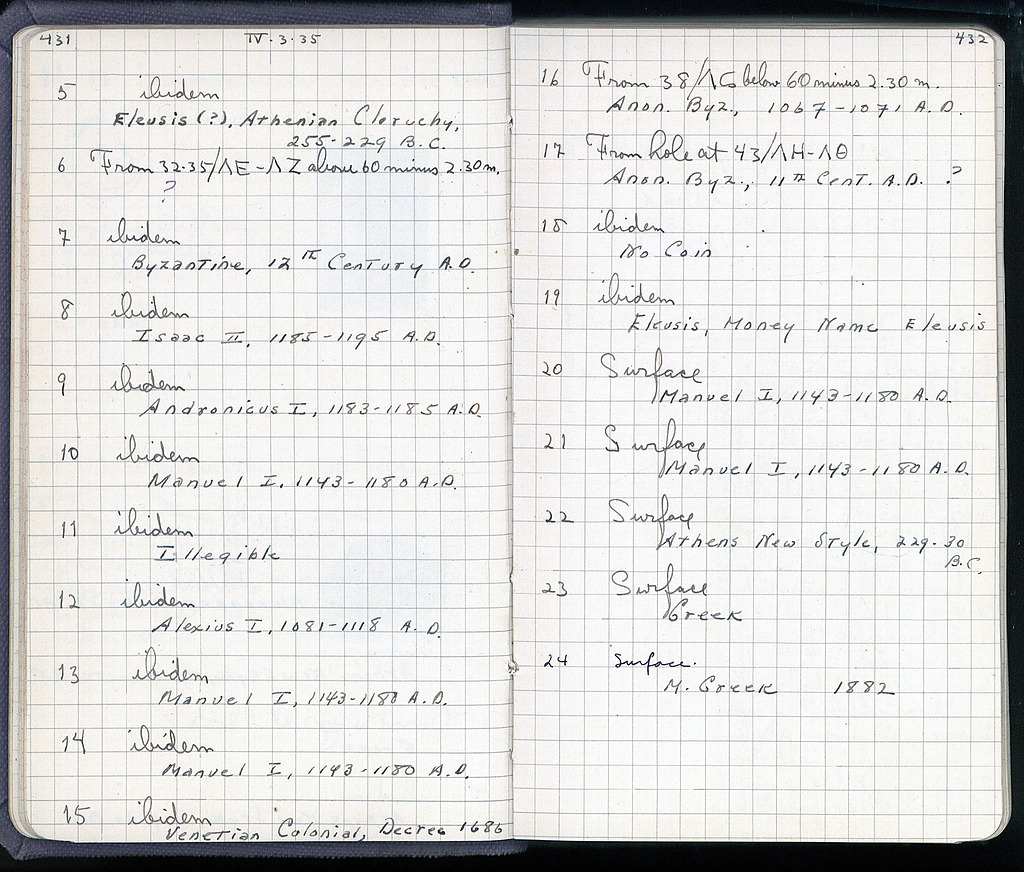 431 IV·3·35
5 ibidem
Eleusis (?), Athenian Cleruchy,
255-229 B.C.
6 From 32·35/ΛΕ-ΛΖ above 60 minus 2.30m.
?
7 ibidem
Byzantine, 12TH Century A.D.
8 ibidem
Isaac II, 1185-1195 A.D.
9 ibidem
Andronicus I, 1183-1185 A.D.
10 ibidem
Manuel I, 1143-1180 A.D.
11 ibidem
Illegible
12 ibidem
Alexius I, 1081-1118 A.D.
13 ibidem
Manuel I, 1143-1180 A.D.
14 ibidem
Manuel I, 1143-1180 A.D.
15 ibidem
Venetian Colonial, Decree 1686
432
16 From 38/ΛϚ below 60 minus 2.30 m.
Anon. Byz., 1067-1071 A.D.
17 From hole at 43/ΛΗ-ΛΘ
Anon. Byz., 11TH Cent. A.D. ?
18 ibidem
No Coin
19 ibidem
Eleusis, Money Name Eleusis
20 Surface
Manuel I, 1143-1180 A.D.
21 Surface
Manuel I, 1143-1180 A.D.
22 Surface
Athens New Style, 229-30
B.C.
23 Surface
Greek
24 Surface.
M. Greek 1882